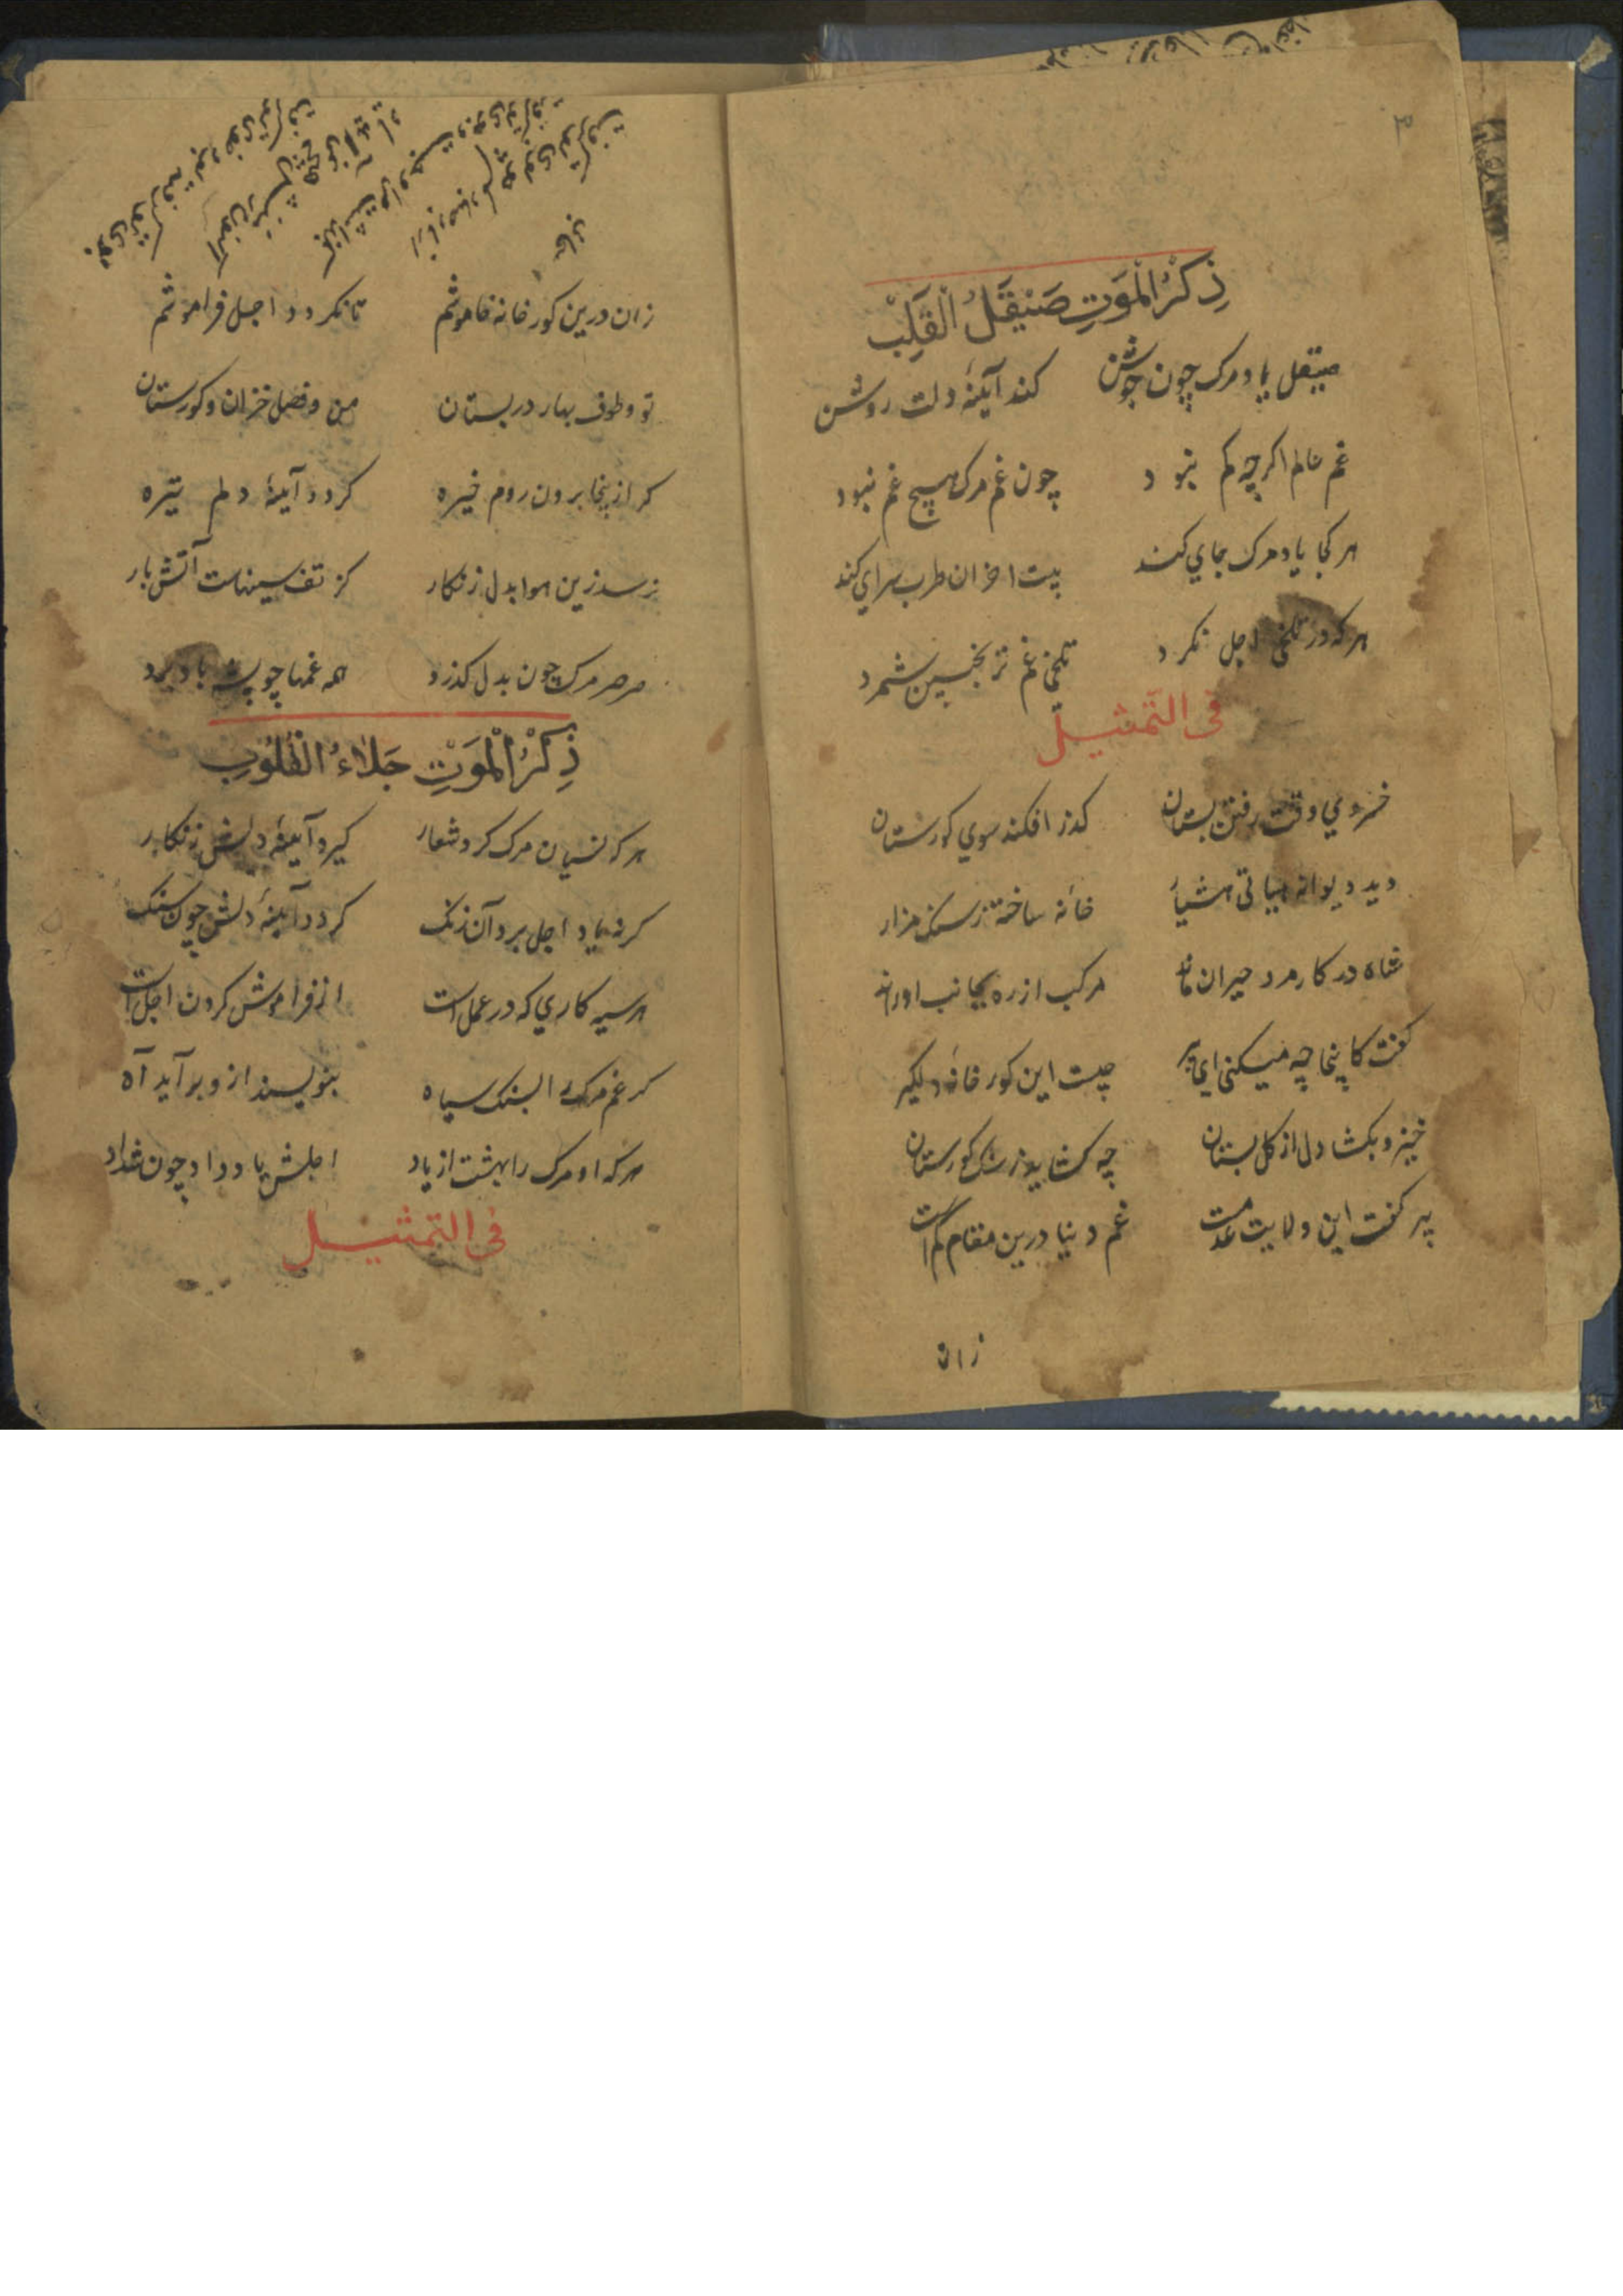 ذِكْرُ الْمَوَتِ صَيْقَلُ الْقَلْبِ
صیقل یاد مرک چون جوشن کند آینهٔ دلت روشن
غم عالم اکرچه کم نبود چون غم مرک هیچ غم نبود
هر کجا یاد مرک جاي کند بیت احزان طرب سراي کند
هر که در تلخی اجل نکرد تلخی غم ترنجبین شمرد
فی التمثیل
خسروي وقت رفتن بستان کذر افکند سوي کورستان
دید دیوانه هشیار خانه ساخته ز سنک مزار
شاه در کار مرد حیران ماند مرکب از ره بجانب او راند
کفت کاینجا چه میکنی اي پیر چیست این کورخانهٔ دلکیر
خیز و بکشا دل از کل بستان چه کشاید ز سنک کورستان
پیر کفت این ولایت عدمست غم دنیا درین مقام کم است
زان
زان درین کورخانه خاموشم تا نکردد اجل فراموشم
تو و طوف بهار در بستان من و فصل خزان و کورستان
کر ازینجا برون روم خیره کردد آینهٔ دلم تیره
نرسد زین هوا بدل زنکار کز تف سینهاست آتش بار
صرصر مرک چون بدل کذرد همه غمها چو پشه باد برد
ذِكْرُ الْمَوْتِ جَلَاءُ الْقُلُوبِ
هر که نسیان مرک کرد شعار کیرد آینهٔ دلش زنکار
کر نه یاد اجل برد آن زنک کردد آینهٔ دلش چون سنک
هر سیه کاري که در عمل است از فراموش کردن اجل است
کر غم مرک را بسنک سیاه بنویسند ازو برآید آه
هر که او مرک را بهشت از یاد اجلش یاد داد چون شداد
فی التمثیل